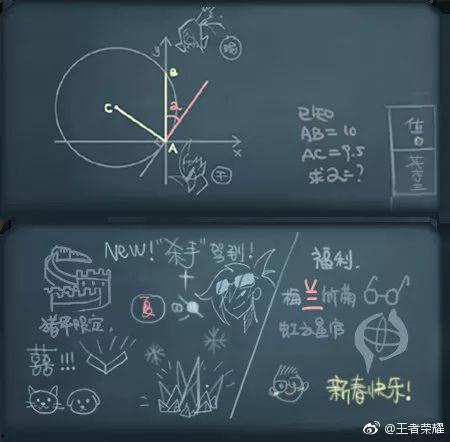 y
B
C
2
A
x
已知
AB=10
AC=9.5
求2=?
值日
New!"杀手"驾到!
+
夏
猪年限定.
囍!!!
福利.
梅兰竹菊
虹云星官
新春快乐!
@王者荣耀